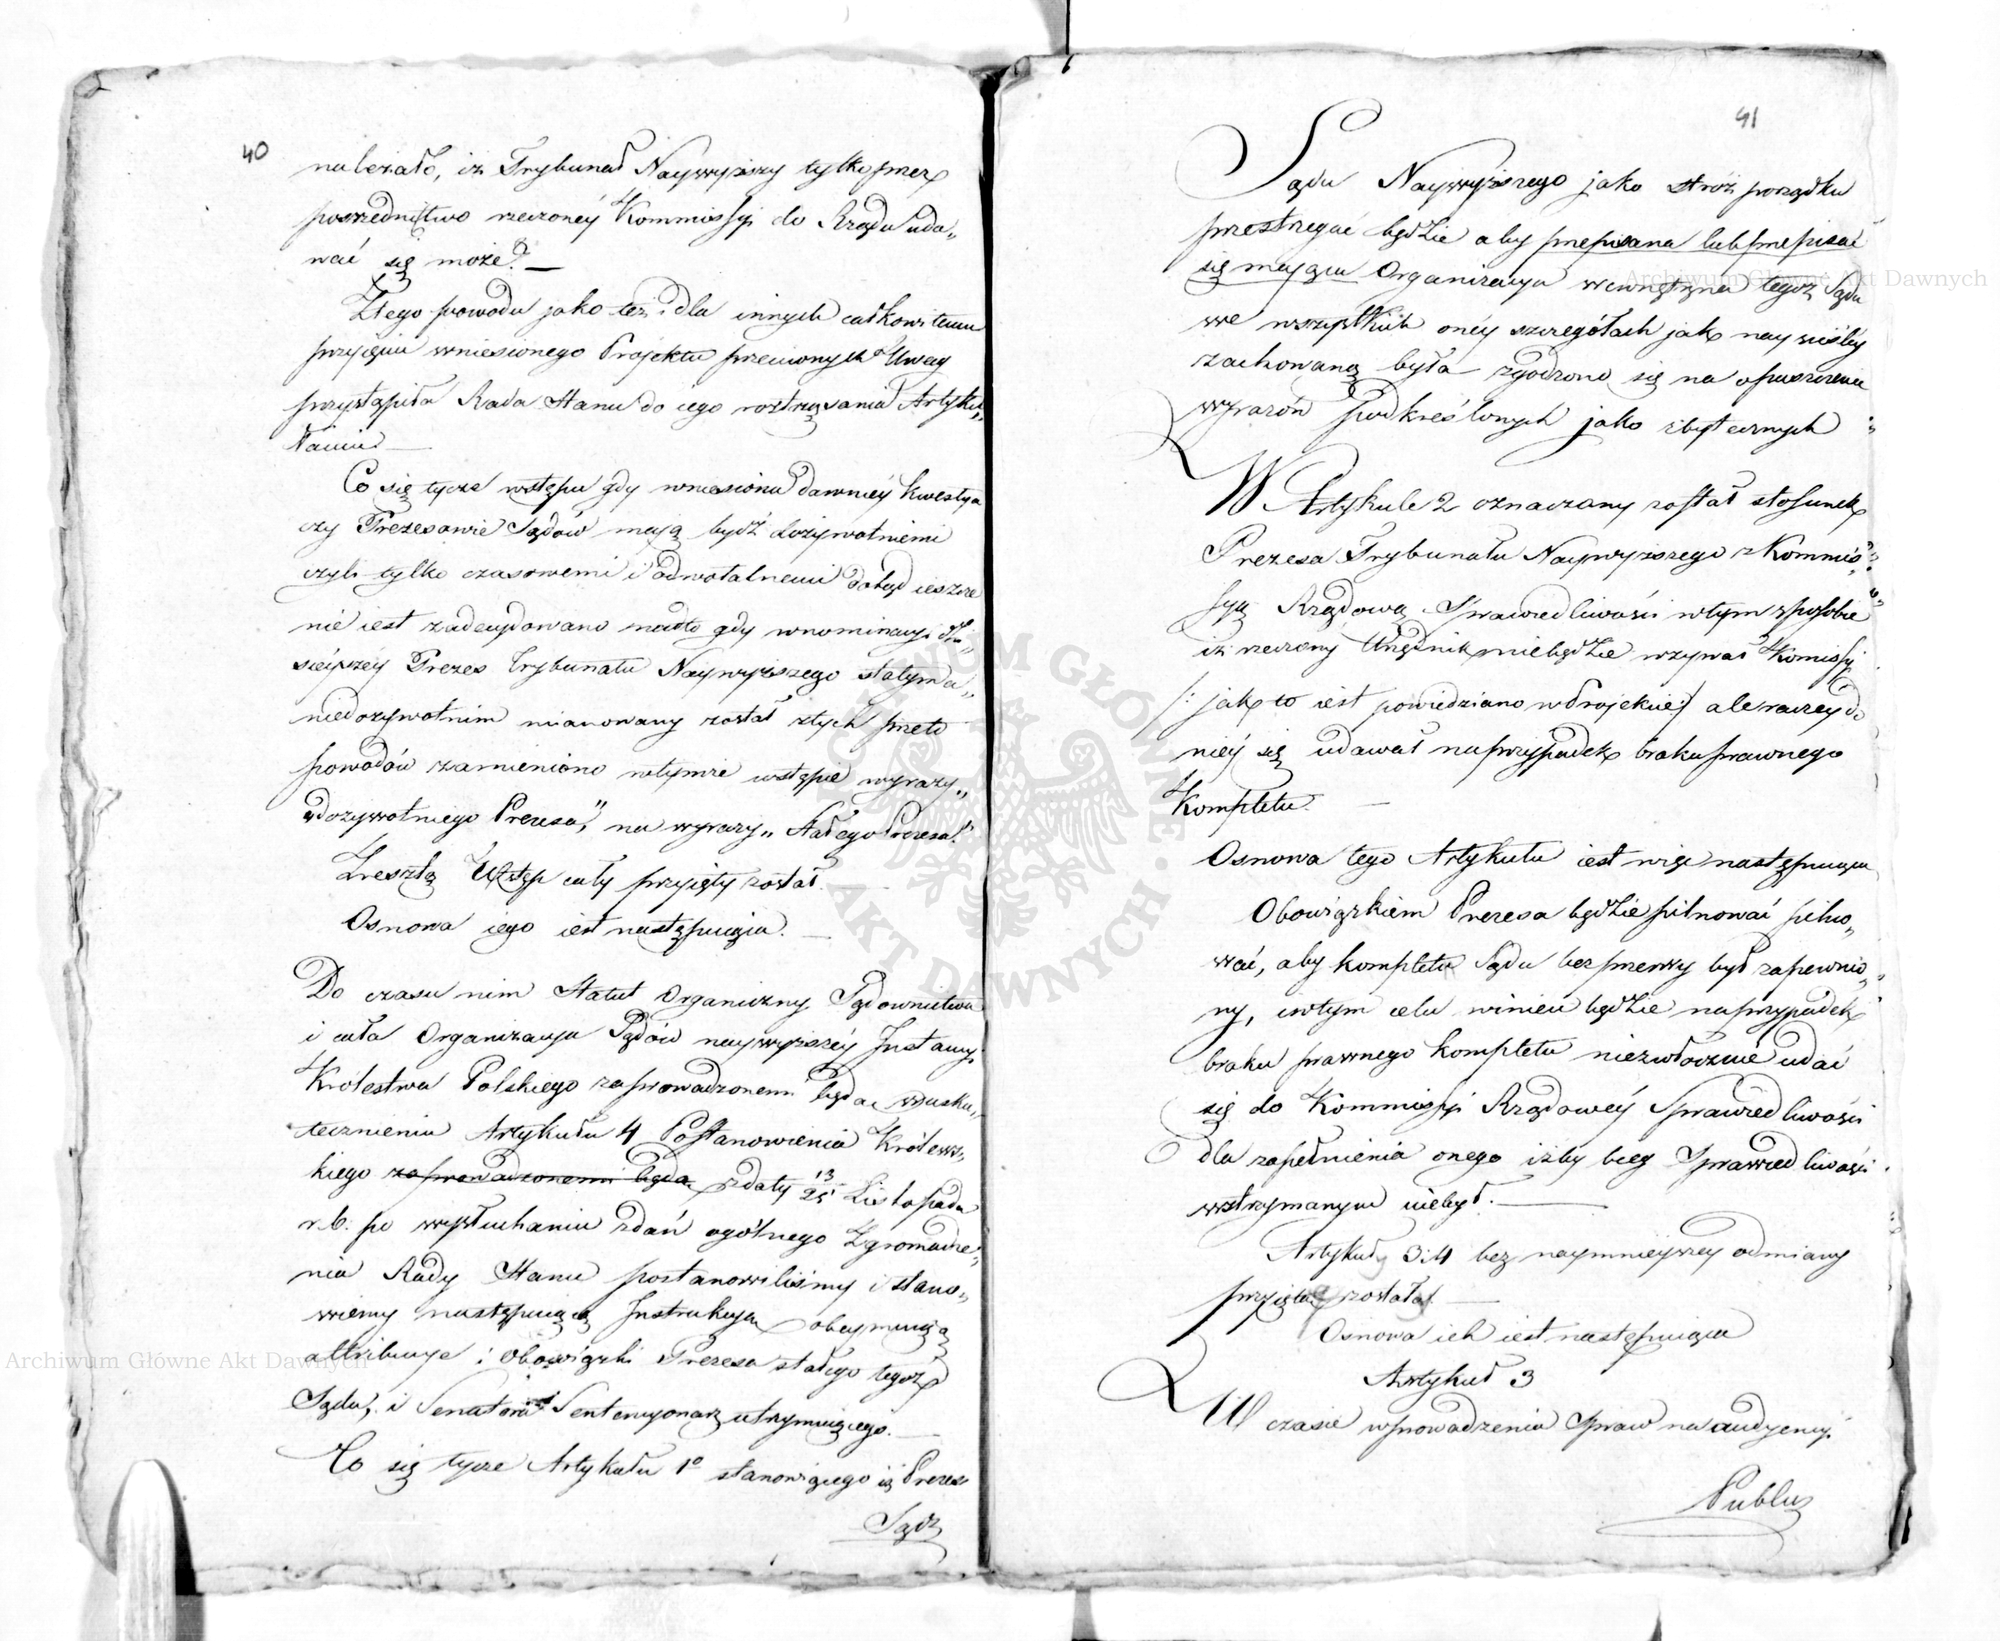 40
należało, iż Trybunał Naywyższy tylko przez
pośrednictwo rzeczonéy Kommissyi do Rządu uda„
wać się może? —
Z tego powodu jako też i dla innych całkowitemu
przyjęciu wniesionego Projektu przeciwnych Uwag
przystąpiła Rada Stanu do iego roztrząsania Artyku„
łami —
Co się tycze wstępu gdy wniesiona dawniéy kwestya
czy Prezesowie Sądów mają bydź dożywotniemi
czyli tylko czasowemi i odwołalnemi dotąd ieszcze
nie iest zadecydowano nadto gdy w nominacyi dzi„
sieyszéy Prezes Trybunału Naywyższego stałym a„
niedożywotnim mianowany został z tych przeto
powodów zamieniono w tymże wstępie wyrazy„
„dożywotniego Prezesa”, na wyrazy „Stałego Prezesa”.
Zresztą Wstęp cały przyięty został. —
Osnowa iego iest następuiąca. —
Do czasu nim Statut Organiczny Sądownictwa
i cała Organizacya Sądów naywyższéy Instancyi
Królestwa Polskiego zaprowadzonemi będą, w usku„
tecznieniu Artykułu 4 Postanowienia Królews„
kiego zaprowadzonemi będą z daty 13/25 Listopada
r. b. po wysłuchaniu zdań ogólnego Zgromadze„
nia Rady Stanu postanowiliśmy i stano„
wiemy następuiącą Instrukcyą obeymuiącą
attribucye i obowiązki Prezesa stałego tegoż
Sądu, i Senatora Sentencyonarz utrzymuiącego. —
Co się tycze Artykułu 1º stanowiącego iż Prezes
Sądu
41
Sądu Naywyższego jako stróż porządku
przestrzegać będzie aby przepisana lub przepisać
się maiąca Organizacya wewnętrzna tegoż Sądu
we wszystkich onéy szczegółach jak nayściśléy
zachowaną była zgodzono się na opuszczenie
wyrazów podkreślonych jako zbytecznych
W Artykule 2 oznaczony został stosunek
Prezesa Trybunału Naywyższego z Kommis„
syą Rządową Sprawiedliwości w tym sposobie
iż rzeczony Urzędnik nie będzie wzywał Komissyi
/: jak to iest powiedziano w Projekcie :/ ale raczey do
niéy się udawał na przypadek braku prawnego
Kompletu. —
Osnowa tego Artykułu iest więc następuiąca
Obowiązkiem Prezesa będzie pilnować pilno„
wać, aby kompletu Sądu bez przerwy był zapewnio„
ny, i w tym celu winien będzie na przypadek
braku prawnego kompletu niezwłocznie udać
się do Kommissyi Rządowéy Sprawiedliwości
dla zapełnienia onego iżby bieg Sprawiedliwości
wstrzymanym niebył. —
Artykuły 3 i 4 bez naymnieyszey odmiany
przyięte zostały —
Osnowa ich iest następuiąca
Artykuł 3
W czasie wprowadzenia Spraw na audyencyi
Publicz